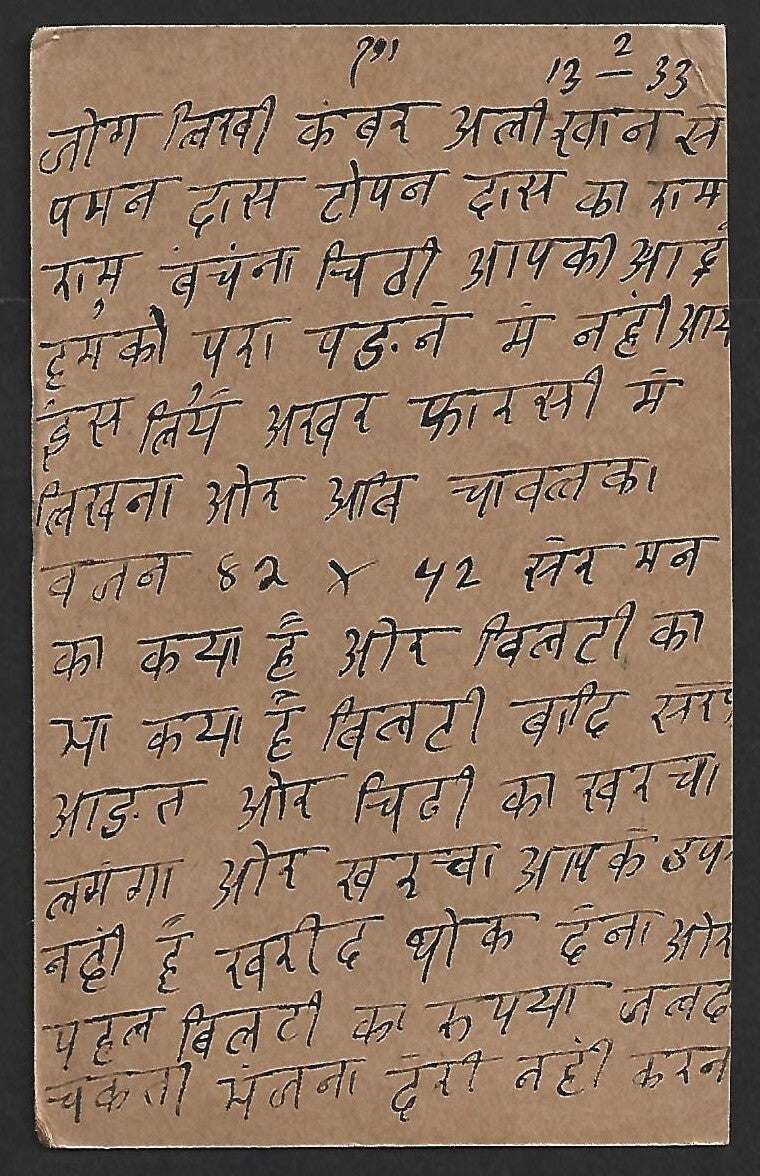 13 2 33
जोग लिखी कंबर अली खान से
पमन दास टोपन दास का राम
राम बंचंना चिठी आपकी आई
हमको परा पड़.नें में नहीं आय
इंस लिये अखर फारसी में
लिखना ओर अबि चावल का
वजन 82 x 42 सेर मन
का कया हैं ओर बिलटी का
भा कया हैं बिलटी बादि
आड़.त ओर चिठी का खरचा
लगेगा ओर खरचा आपके उप
नहीं हैं खरीद थोक देंना ओर
पहल बिलटी का रुपया जलद
चकती भेंजना देंरी नहीं करन